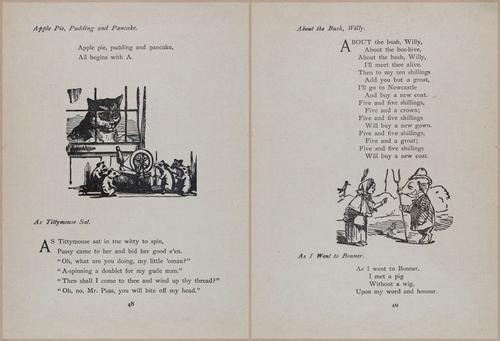 Apple Pie, Pudding and Pancake.
Apple pie, pudding and pancake,
All begins with A.
As Tittymouse Sat.
AS Tittymouse sat in the witty to spin,
Pussy came to her and bid her good e'en.
"Oh, what are you doing, my little 'oman?"
"A-spinning a doublet for my gude man."
"Then shall I come to thee and wind up thy thread?"
"Oh, no, Mr. Puss, you will bite off my head."
48
About the Bush, Willy.
ABOUT the bush, Willy,
About the bee-hive,
About the bush, Willy,
I'll meet thee alive.
Then to my ten shillings
Add you but a groat,
I'll go to Newcastle
And buy a new coat.
Five and five shillings,
Five and a crown;
Five and five shillings
Will buy a new gown.
Five and five shillings,
Five and a groat;
Five and five shillings
Will buy a new coat.
As I Went to Bonner.
As I went to Bonner,
I met a pig
Without a wig,
Upon my word and honour.
49